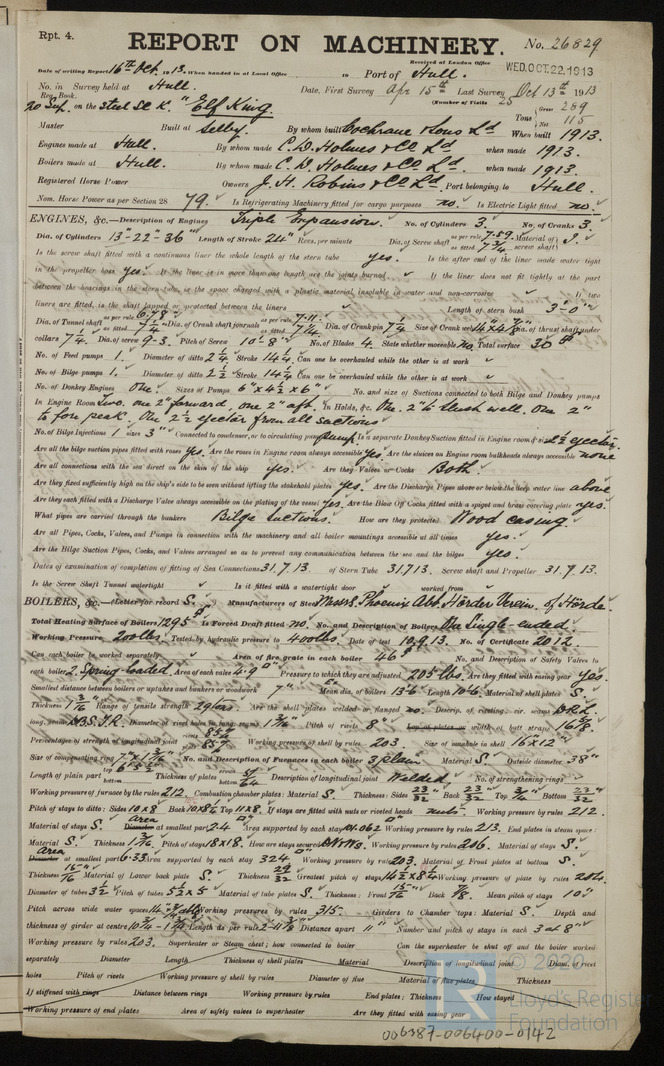 Rpt. 4.
REPORT ON MACHINERY.
No. 26829
Received at London Office
WED. OCT. 22. 1913
Date of writing Report 16th Oct. 1913. When handed in at Local Office 19 Port of Hull.
No. in Survey held at Hull. Date, First Survey Apr 15th Last Survey Oct 13th 1913
Reg. Book. (Number of Visits 25
20 Sup. on the Steel Sc K. "Elf King. Tons Gross 289 Net 115
Master Built at Selby. By whom built Cochrane & Sons Ld When built 1913.
Engines made at Hull. By whom made C. D. Holmes & Co Ld. when made 1913.
Boilers made at Hull. By whom made C. D. Holmes & Co. Ld. when made 1913.
Registered Horse Power Owners J. H. Robins & Co Ld. Port belonging to Hull.
Nom. Horse Power as per Section 28 79. Is Refrigerating Machinery fitted for cargo purposes no. Is Electric Light fitted no.
ENGINES, &c.—Description of Engines Triple Expansion. No. of Cylinders 3. No. of Cranks 3.
Dia. of Cylinders 13"-22"-36" Length of Stroke 24" Revs. per minute Dia. of Screw shaft as per rule 7.59. as fitted 7 3/4 Material of screw shaft S.
Is the screw shaft fitted with a continuous liner the whole length of the stern tube yes. Is the after end of the liner made water tight
in the propeller boss yes. If the liner is in more than one length are the joints burned If the liner does not fit tightly at the part
between the bearings in the stern tube, is the space charged with a plastic material insoluble in water and non-corrosive If two
liners are fitted, is the shaft lapped or protected between the liners Length of stern bush 3'-0"
Dia. of Tunnel shaft as per rule 6.78 as fitted 7 1/4 Dia. of Crank shaft journals as per rule 7.11. as fitted 7 1/4 Dia. of Crank pin 7 1/4 Size of Crank webs 14"x4 7/8 Dia. of thrust shaft under
collars 7 1/4. Dia. of screw 9-3. Pitch of Screw 10'-8" No. of Blades 4. State whether moveable no. Total surface 30
No. of Feed pumps 1. Diameter of ditto 2 1/4 Stroke 14 1/4 Can one be overhauled while the other is at work
No. of Bilge pumps 1. Diameter of ditto 2 1/2 Stroke 14 1/4 Can one be overhauled while the other is at work
No. of Donkey Engines One. Sizes of Pumps 6"x4 1/2"x6" No. and size of Suctions connected to both Bilge and Donkey pumps
In Engine Room Two. one 2" forward, one 2" aft. In Holds, &c. One. 2" to slush well. One 2"
to fore peak. One 2 1/2 ejector from all suctions
No. of Bilge Injections 1 sizes 3" Connected to condenser, or to circulating pump pump. Is a separate Donkey Suction fitted in Engine room & size 2 1/2 ejector.
Are all the bilge suction pipes fitted with roses Yes. Are the roses in Engine room always accessible Yes. Are the sluices on Engine room bulkheads always accessible none
Are all connections with the sea direct on the skin of the ship yes. Are they Valves or Cocks Both
Are they fixed sufficiently high on the ship's side to be seen without lifting the stokehold plates Yes. Are the Discharge Pipes above or below the deep water line above
Are they each fitted with a Discharge Valve always accessible on the plating of the vessel Yes. Are the Blow Off Cocks fitted with a spigot and brass covering plate yes.
What pipes are carried through the bunkers Bilge Suctions. How are they protected Wood casing.
Are all Pipes, Cocks, Valves, and Pumps in connection with the machinery and all boiler mountings accessible at all times yes.
Are the Bilge Suction Pipes, Cocks, and Valves arranged so as to prevent any communication between the sea and the bilges yes.
Dates of examination of completion of fitting of Sea Connections 31.7.13. of Stern Tube 31.7.13. Screw shaft and Propeller 31.7.13.
Is the Screw Shaft Tunnel watertight Is it fitted with a watertight door worked from
BOILERS, &c.—(Letter for record S.) Manufacturers of Steel Messrs Phoenix Abt. Hörder Verein. of Hörde.
Total Heating Surface of Boilers 1295 Is Forced Draft fitted no. No. and Description of Boilers One Single-ended.
Working Pressure 200lbs. Tested by hydraulic pressure to 400lbs. Date of test 10.9.13. No. of Certificate 2012.
Can each boiler be worked separately Area of fire grate in each boiler 46 No. and Description of Safety Valves to
each boiler 2. Spring loaded. Area of each valve 4.9 Pressure to which they are adjusted 205 lbs. Are they fitted with easing gear Yes.
Smallest distance between boilers or uptakes and bunkers or woodwork 7" Mean dia. of boilers 13'-6" Length 10'-6 Material of shell plates S.
Thickness 1 3/16" Range of tensile strength 29 tons. Are the shell plates welded or flanged no. Descrip. of riveting: cir. seams D.R.L.
long. seams D.B.S.T.R. Diameter of rivet holes in long. seams 1 3/16 Pitch of rivets 8" Lap of plates or width of butt straps 16 5/8.
Percentages of strength of longitudinal joint rivets plate Working pressure of shell by rules 203. Size of manhole in shell 16x12"
Size of compensating ring No. and Description of Furnaces in each boiler 3 plain Material S. Outside diameter 38"
Length of plain part top bottom Thickness of plates crown bottom Description of longitudinal joint Welded. No. of strengthening rings
Working pressure of furnace by the rules 212. Combustion chamber plates: Material S. Thickness: Sides 23/32" Back 23/32 Top 3/4" Bottom 23/32
Pitch of stays to ditto: Sides 10x8 Back 10x8 1/2 Top 11x8. If stays are fitted with nuts or riveted heads nuts. Working pressure by rules 212.
Material of stays S. Area at smallest part 2.4 Area supported by each stay Working pressure by rules 213. End plates in steam space:
Material S. Thickness 1 1/16. Pitch of stays 18x18. How are stays secured D.N.&W. Working pressure by rules 206. Material of stays S.
Area at smallest part 6.33 Area supported by each stay 324 Working pressure by rules 203. Material of Front plates at bottom S.
Thickness 15/16" Material of Lower back plate S. Thickness 29/32 Greatest pitch of stays 14 1/2 x 8 1/2 Working pressure of plate by rules 204.
Diameter of tubes 3 1/2 Pitch of tubes 5 1/2 x 5 Material of tube plates S. Thickness: Front 15/16" Back 7/8. Mean pitch of stays 10"
Pitch across wide water spaces Working pressures by rules 315. Girders to Chamber tops: Material S. Depth and
thickness of girder at centre Length as per rule Distance apart 11" Number and pitch of stays in each 3 at 8"
Working pressure by rules 203. Superheater or Steam chest; how connected to boiler Can the superheater be shut off and the boiler worked
separately Diameter Length Thickness of shell plates Material Description of longitudinal joint Diam. of rivet
holes Pitch of rivets Working pressure of shell by rules Diameter of flue Material of flue plates Thickness
If stiffened with rings Distance between rings Working pressure by rules End plates; Thickness How stayed
Working pressure of end plates Area of safety valves to superheater Are they fitted with easing gear
© 2020
Lloyd's Register
Foundation
006387-006400-0142